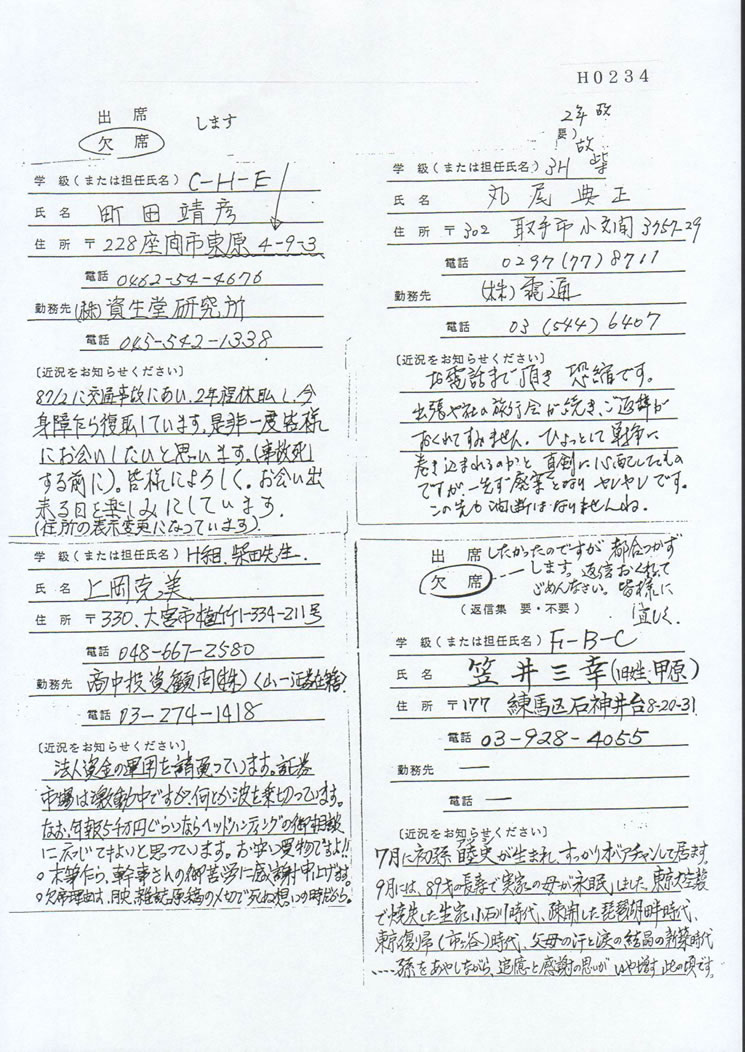 H0234
出 席
欠 席
します
学 級(または担任氏名) C-H-E
氏 名 町田靖彦
住 所 〒228座間市東原4-9-3
電話 0462-54-4676
勤務先 (株)資生堂研究所
電話 045-542-1338
〔近況をお知らせください〕
87/2に交通事故にあい、2年程休职し、今
身障乍ら復职しています。是非一度皆様
にお会いしたいと思います。(事故死
する前に)。皆様によろしく。お会い出
来る日を楽しみにしています。
(住所の表示変更になっています)
2年 故
要)
故
学 級(または担任氏名) 3H 柴
氏 名 丸尾典正
住 所 〒302 取手市小文間3757-29
電話 0297(77)8711
勤務先 (株)電通
電話 03(544)6407
〔近況をお知らせください〕
お電話まで頂き 恐縮です。
出張や社の旅行会が続き、ご返辞が
おくれてすみません。ひょっとして戦争に
巻き込まれるのかと 真剣に心配したもの
ですが、一先ず廃案となり ヤレヤレです。
この先も油断はなりませんね。
学 級(または担任氏名) H組、柴田先生.
氏 名 上岡克美
住 所 〒330、大宮市植竹1-334-211号
電話 048-667-2580
勤務先 投資顧問(株)
電話 03-274-1418
〔近況をお知らせください〕
法人資金の運用を請負っています。証券
市場は激動中ですが何とか波を乗切っています。
なお、年報5千万円ぐらいならヘッドハンティングの御相談
に応じてもよいと思っています。お安い買物ですよ!!
○末筆乍ら、幹事さんの御苦労に感謝申上げます。
○欠席理由は、月史、雑誌原稿の〆切で死ぬ想いの時だから。
出 席 したかったのですが 都合つかず
欠 席 します。返信おくれて
ごめんなさい。皆様に
宜しく。
(返信集 要・不要)
学 級(または担任氏名) F-B-C
氏 名 笠井三幸(旧姓・甲原)
住 所 〒177 練馬区石神井台8-20-31
電話 03-928-4055
勤務先 ―
電話 ―
〔近況をお知らせください〕
7月に初孫 睦史が生まれ、すっかりオバアチャンして居ます。
9月には、89才の長寿で実家の母が永眠しました。東京大空襲
で焼失した生家小石川時代、疎開した琵琶湖畔時代、
東京復帰(市ヶ谷)時代、父母の汗と涙の結晶の新築時代
……孫をあやしながら、追憶と感謝の思いが いや増す此の頃です。